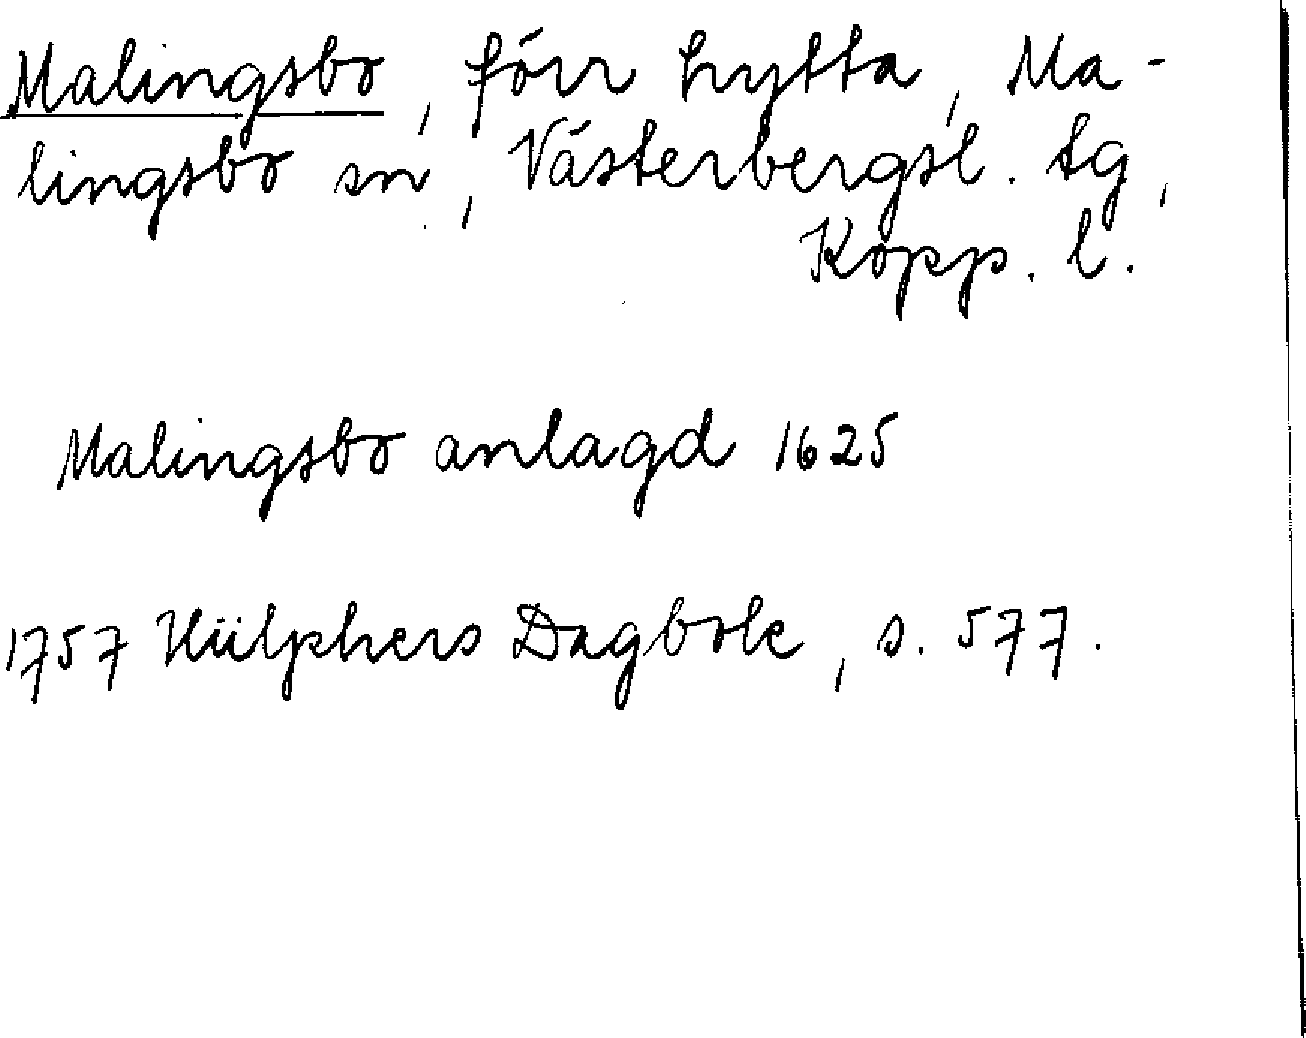 Malingsbo, förr hytta, Ma-
lingsbo sn, Västerbergsl. tg,
Kopp. l.
Malingsbo anlagd 1625
1757 Hülphers Dagbok, s. 577.